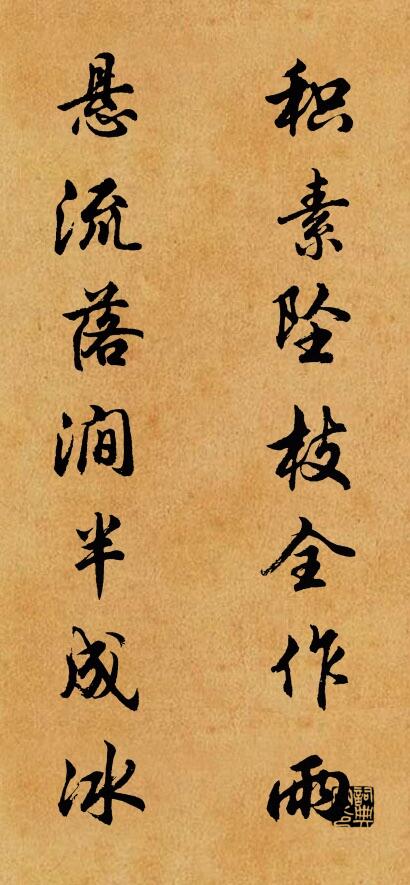 积素坠枝全作雨
悬流落涧半成冰